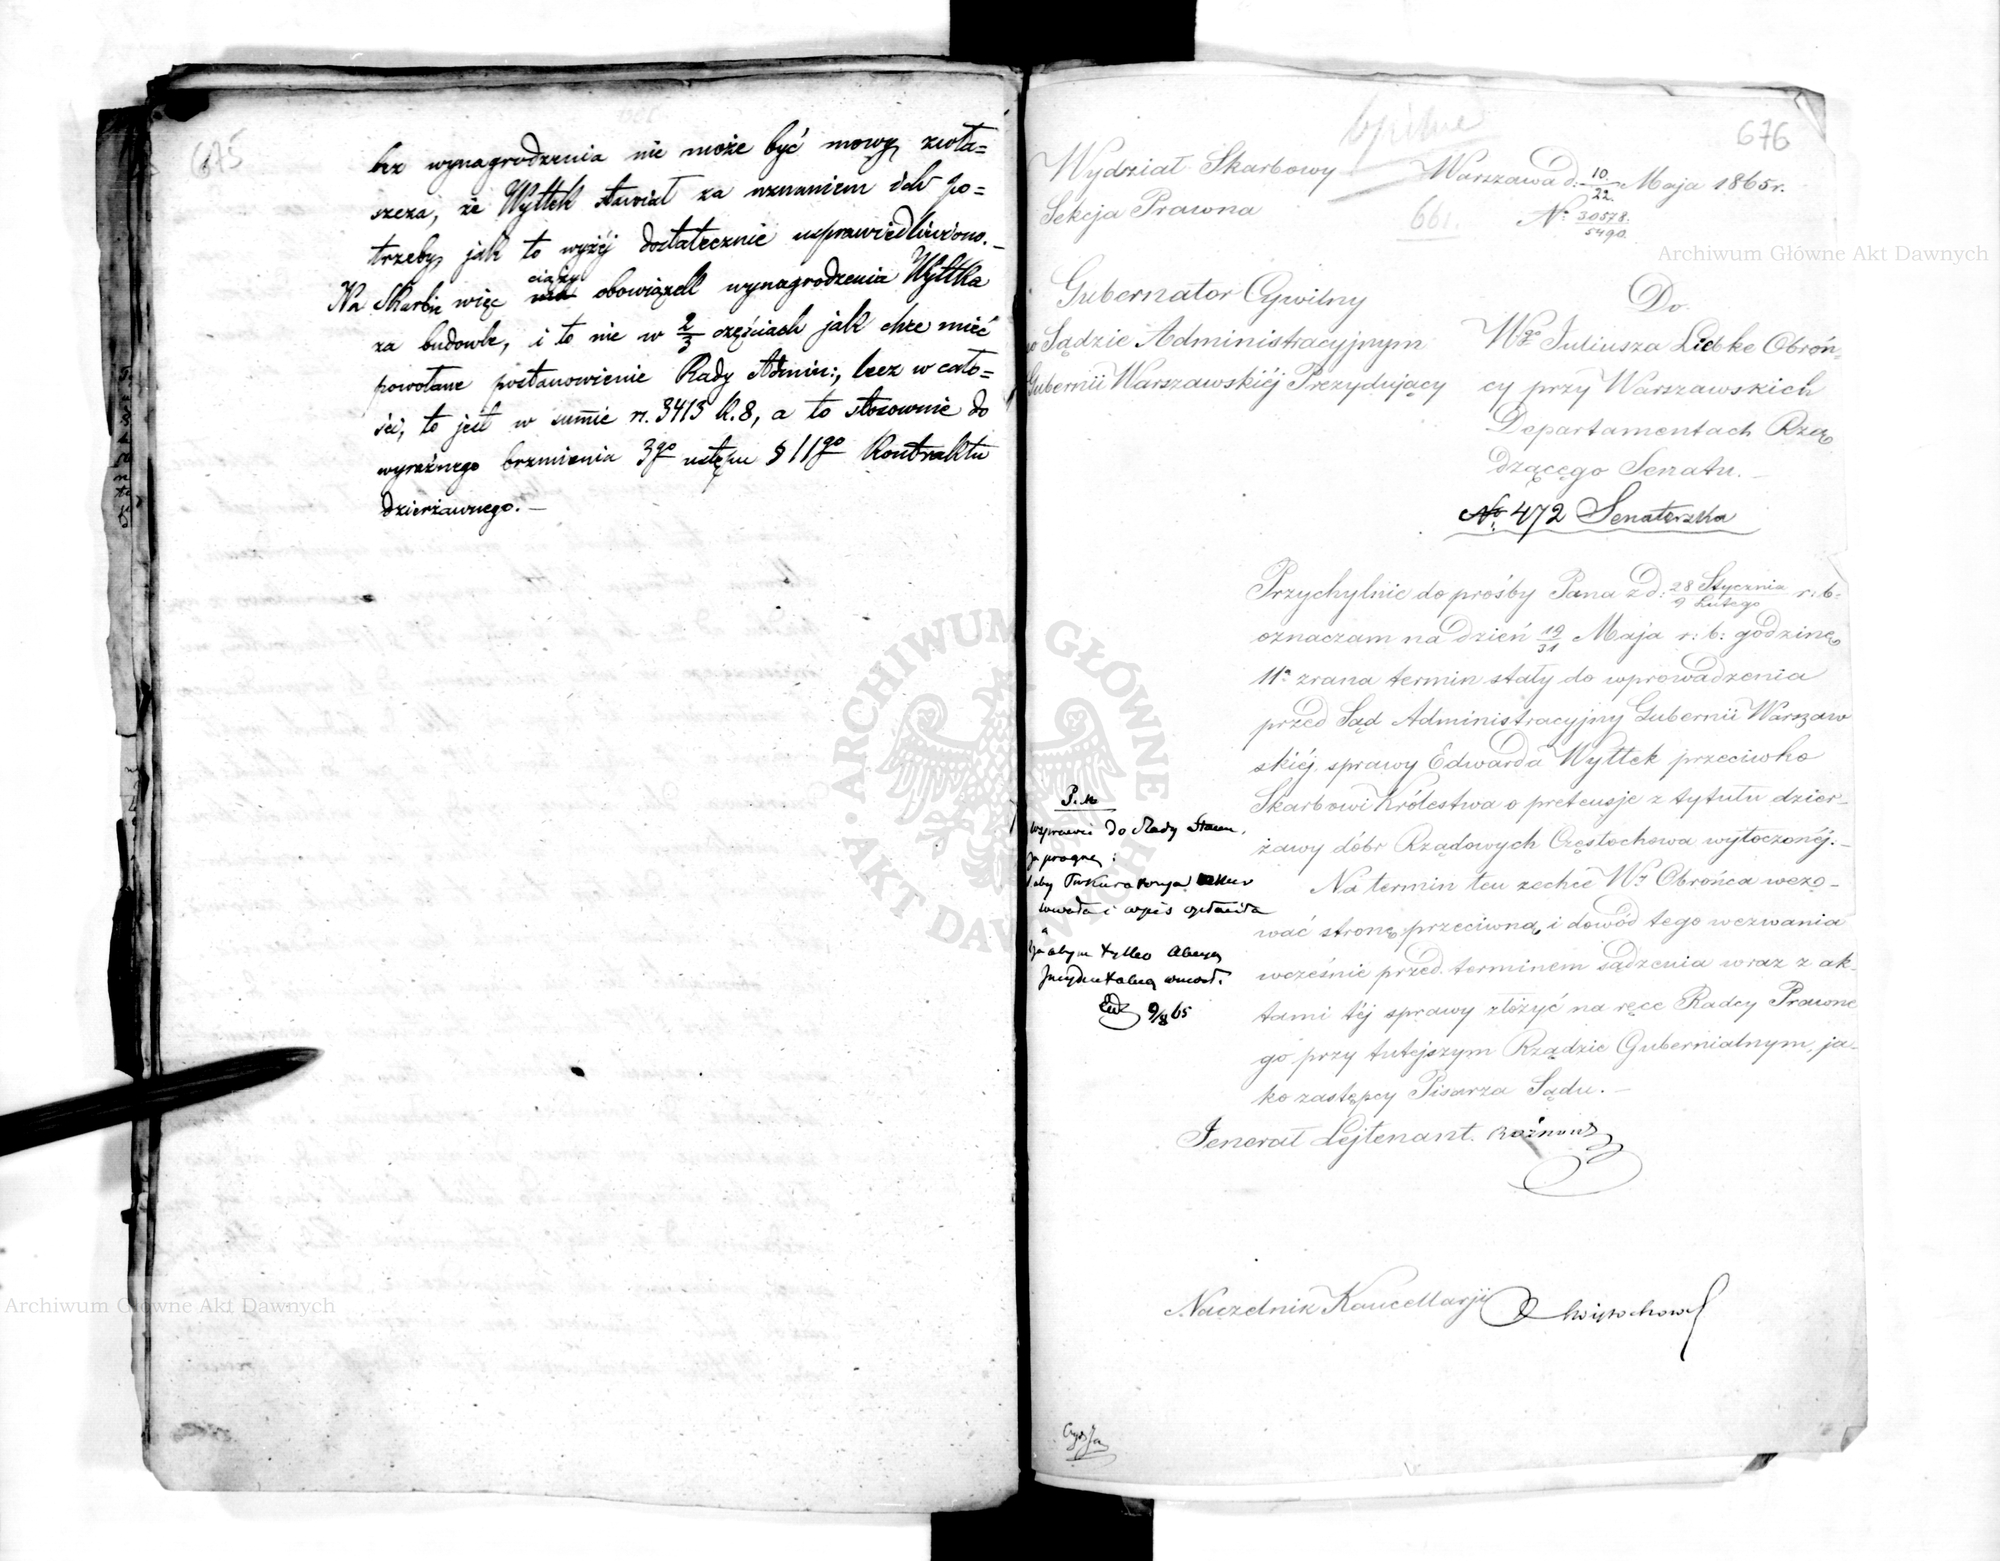 675
bez wynagrodzenia nie może być mowy, zwła=
szcza, że Wyttek stawiał za uznaniem ich po=
trzeby, jak to wyżéj dostatecznie usprawiedliwiono.—
Na Skarbie więc ciąży obowiązek wynagrodzenia Wyttka
za budowle, i to nie w 2/3 częściach jak chce mieć
powołane postanowienie Rady Admin:, lecz w cało=
ści, to jest w sumie rs. 3413 k. 8, a to stosownie do
wyraźnego brzmienia 3go ustępu § 11go Kontraktu
dzierżawnego.—
676
pilne
Wydział Skarbowy
Sekcja Prawna
Warszawa d: 10/22 Maja 1865 r.
661.
No 30578/5490
Gubernator Cywilny
w Sądzie Administracyjnym
Gubernii Warszawskiéj Prezydujący
Do
Wgo Juliusza Liebke Obroń-
cy przy Warszawskich
Departamentach Rzą
dzącego Senatu.—
No. 472 Senatorska
Przychylnie do prośby Pana z d: 28 Stycznia/9 Lutego r: b:
oznaczam na dzień 19/31 Maja r: b: godzinę
11a zrana termin stały do wprowadzenia
przed Sąd Administracyjny Gubernii Warszaw
skiéj, sprawy Edwarda Wyttek przeciwko
Skarbowi Królestwa o pretensje z tytułu dzier-
żawy dóbr Rządowych Częstochowa wytoczonéj.—
Na termin ten zechce Wy Obrońca wezo-
wać stronę przeciwną, i dowód tego wezwania
wcześnie przed terminem sądzenia wraz z ak-
tami téj sprawy złożyć na ręce Radcy Prawne
go przy tutejszym Rządzie Gubernialnym, ja-
ko zastępcy Pisarza Sądu.—
Jenerał Lejtenant. Rożnow
Naczelnik Kancellarji
P. M
do Rady Stanu,
ja pragnę:
aby Prokuratorya
i wpis opłaciła
a
ja abym tylko
9/XI 65
Archiwum Główne Akt Dawnych
Archiwum Główne Akt Dawnych
ARCHIWUM GŁÓWNE AKT DAWNYCH